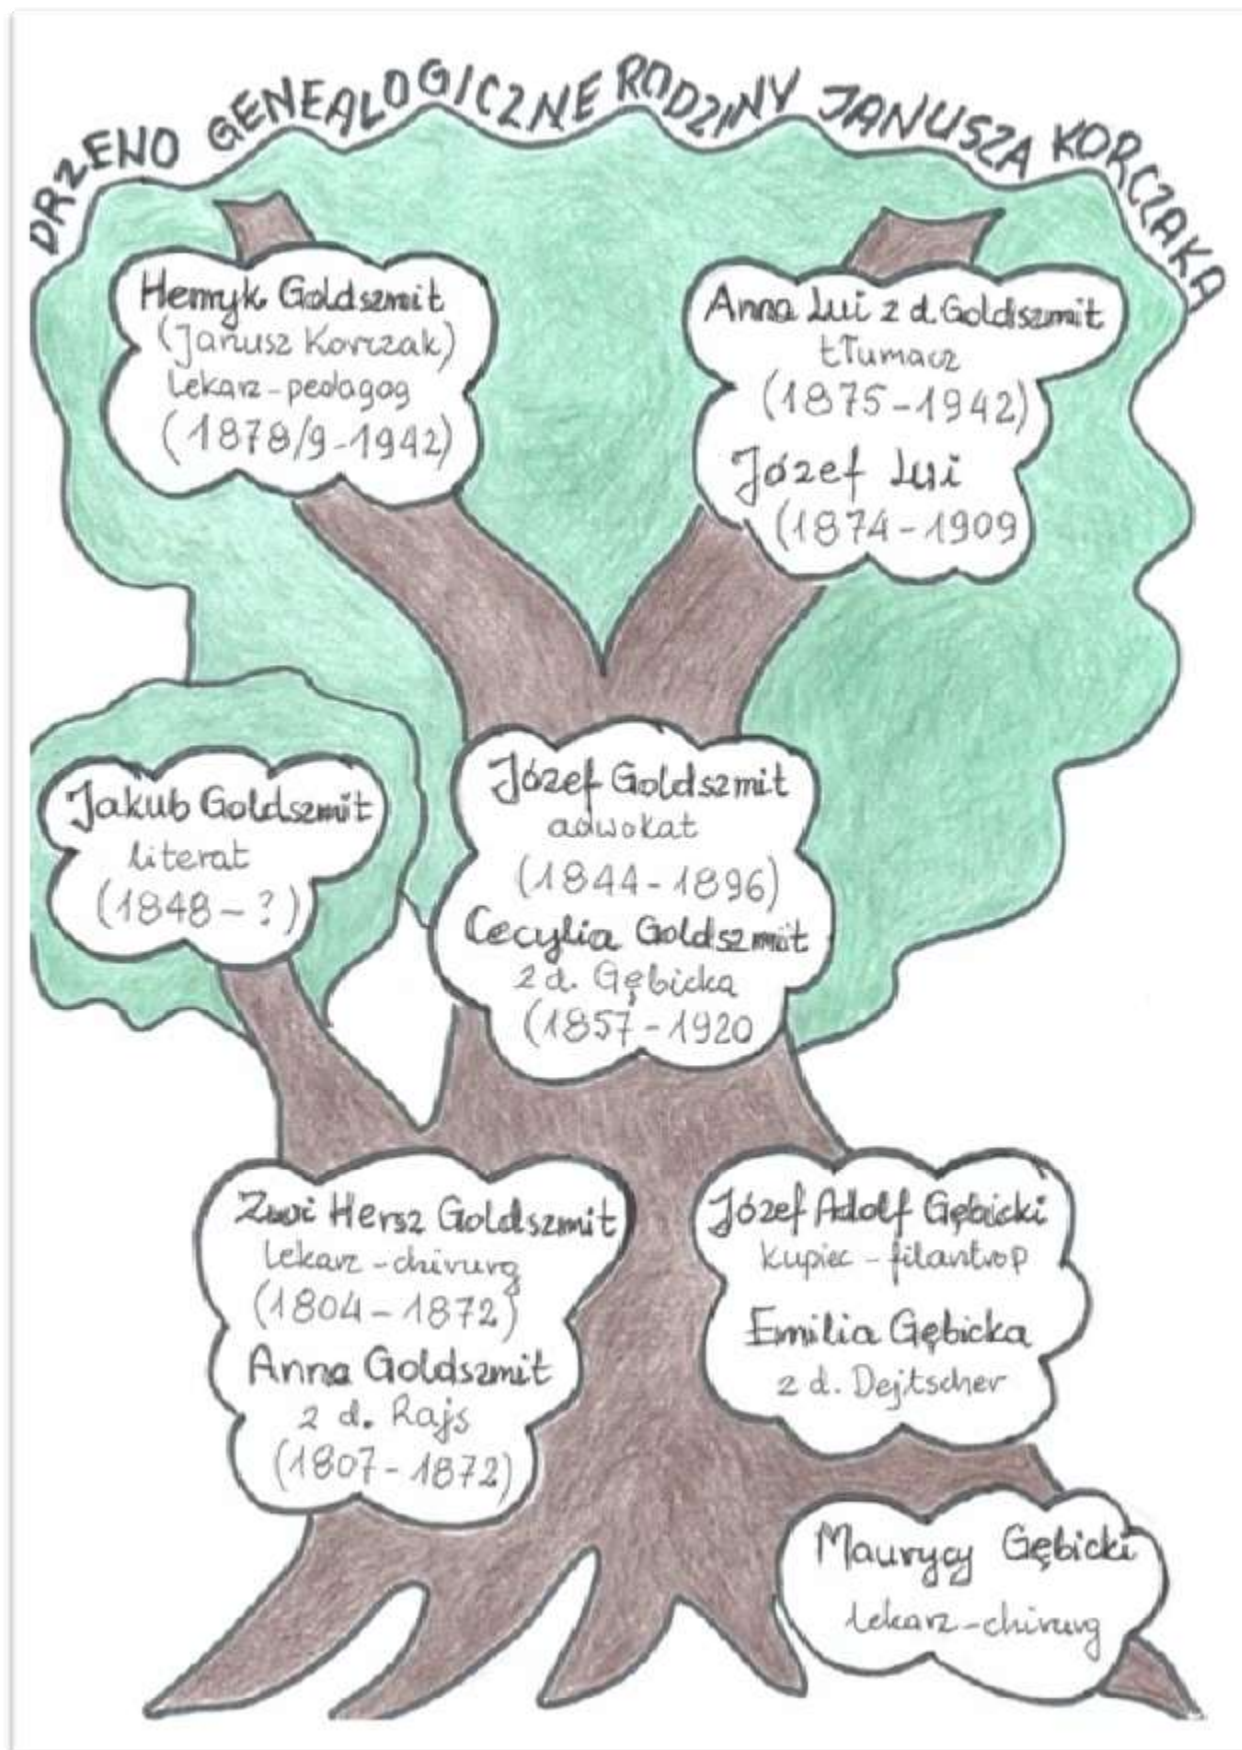 DRZEWO GENEALOGICZNE RODZINY JANUSZA KORCZAKA
Henryk Goldszmit
(Janusz Korczak)
Lekarz - pedagog
(1878/9-1942)
Anna Lui z d. Goldszmit
tłumacz
(1875-1942)
Józef Lui
(1874-1909
Jakub Goldszmit
literat
(1848-?)
Józef Goldszmit
adwokat
(1844-1896)
Cecylia Goldszmit
z d. Gębicka
(1857-1920
Zwi Hersz Goldszmit
Lekarz - chirurg
(1804-1872)
Anna Goldszmit
z d. Rajs
(1807-1872)
Józef Adolf Gębicki
kupiec - filantrop
Emilia Gębicka
z d. Dejtscher
Maurycy Gębicki
lekarz - chirurg